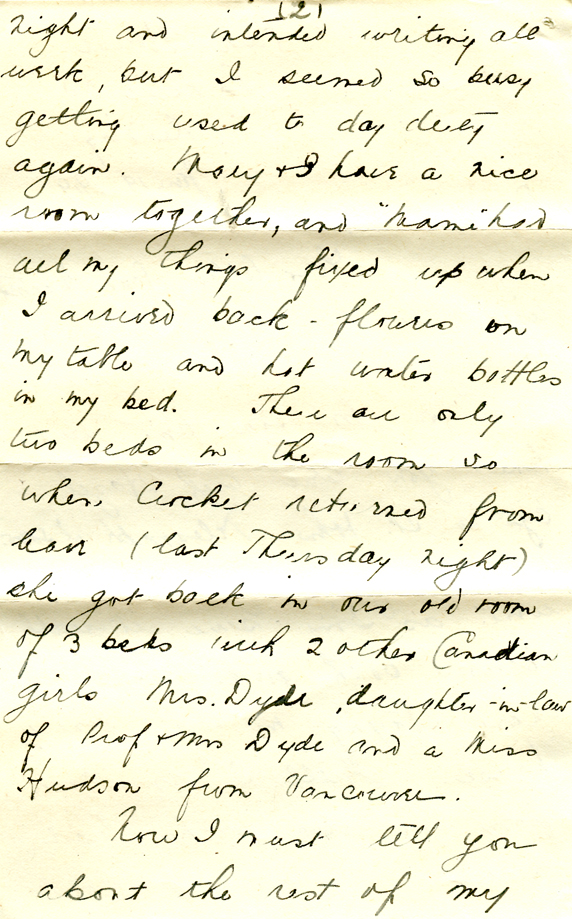 (2)
night and intended writing all
week, but I seemed so busy
getting used to day duty
again. Mary & I have a nice
room together, and "Mami" had
all my things fixed up when
I arrived back - flowers on
my table and hot water bottles
in my bed. There are only
two beds in the room so
when Crocket returned from
leave (last Thursday night)
she got back in our old room
of 3 beds with 2 other Canadian
girls Mrs. Dyde, daughter-in-law
of Prof & Mrs Dyde and a Miss
Hudson from Vancouver.
Now I must tell you
about the rest of my